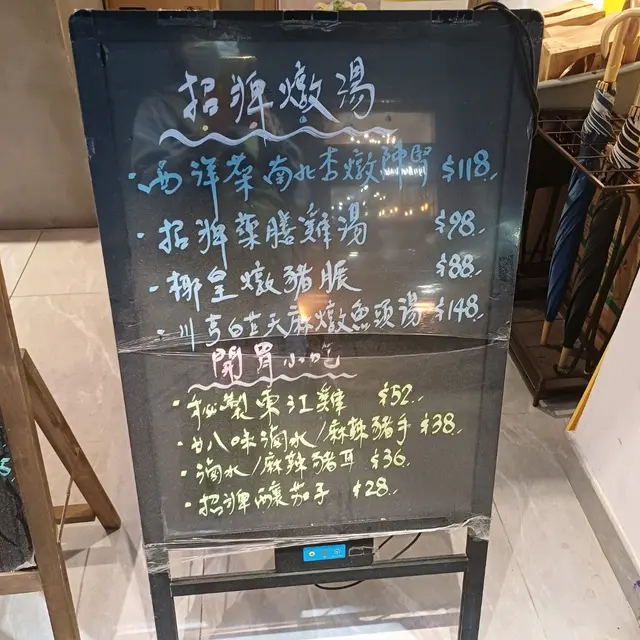 招牌燉湯
· 西洋菜南北杏燉陳腎 $118
· 招牌藥膳雞湯 $98
· 椰皇燉豬𦟌 $88
· 川芎白芷天麻燉魚頭湯 $148
開胃小吃
· 秘製東江雞 $52
· 廿八味滷水/麻辣豬手 $38
· 滷水/麻辣豬耳 $36
· 招牌釀茄子 $28